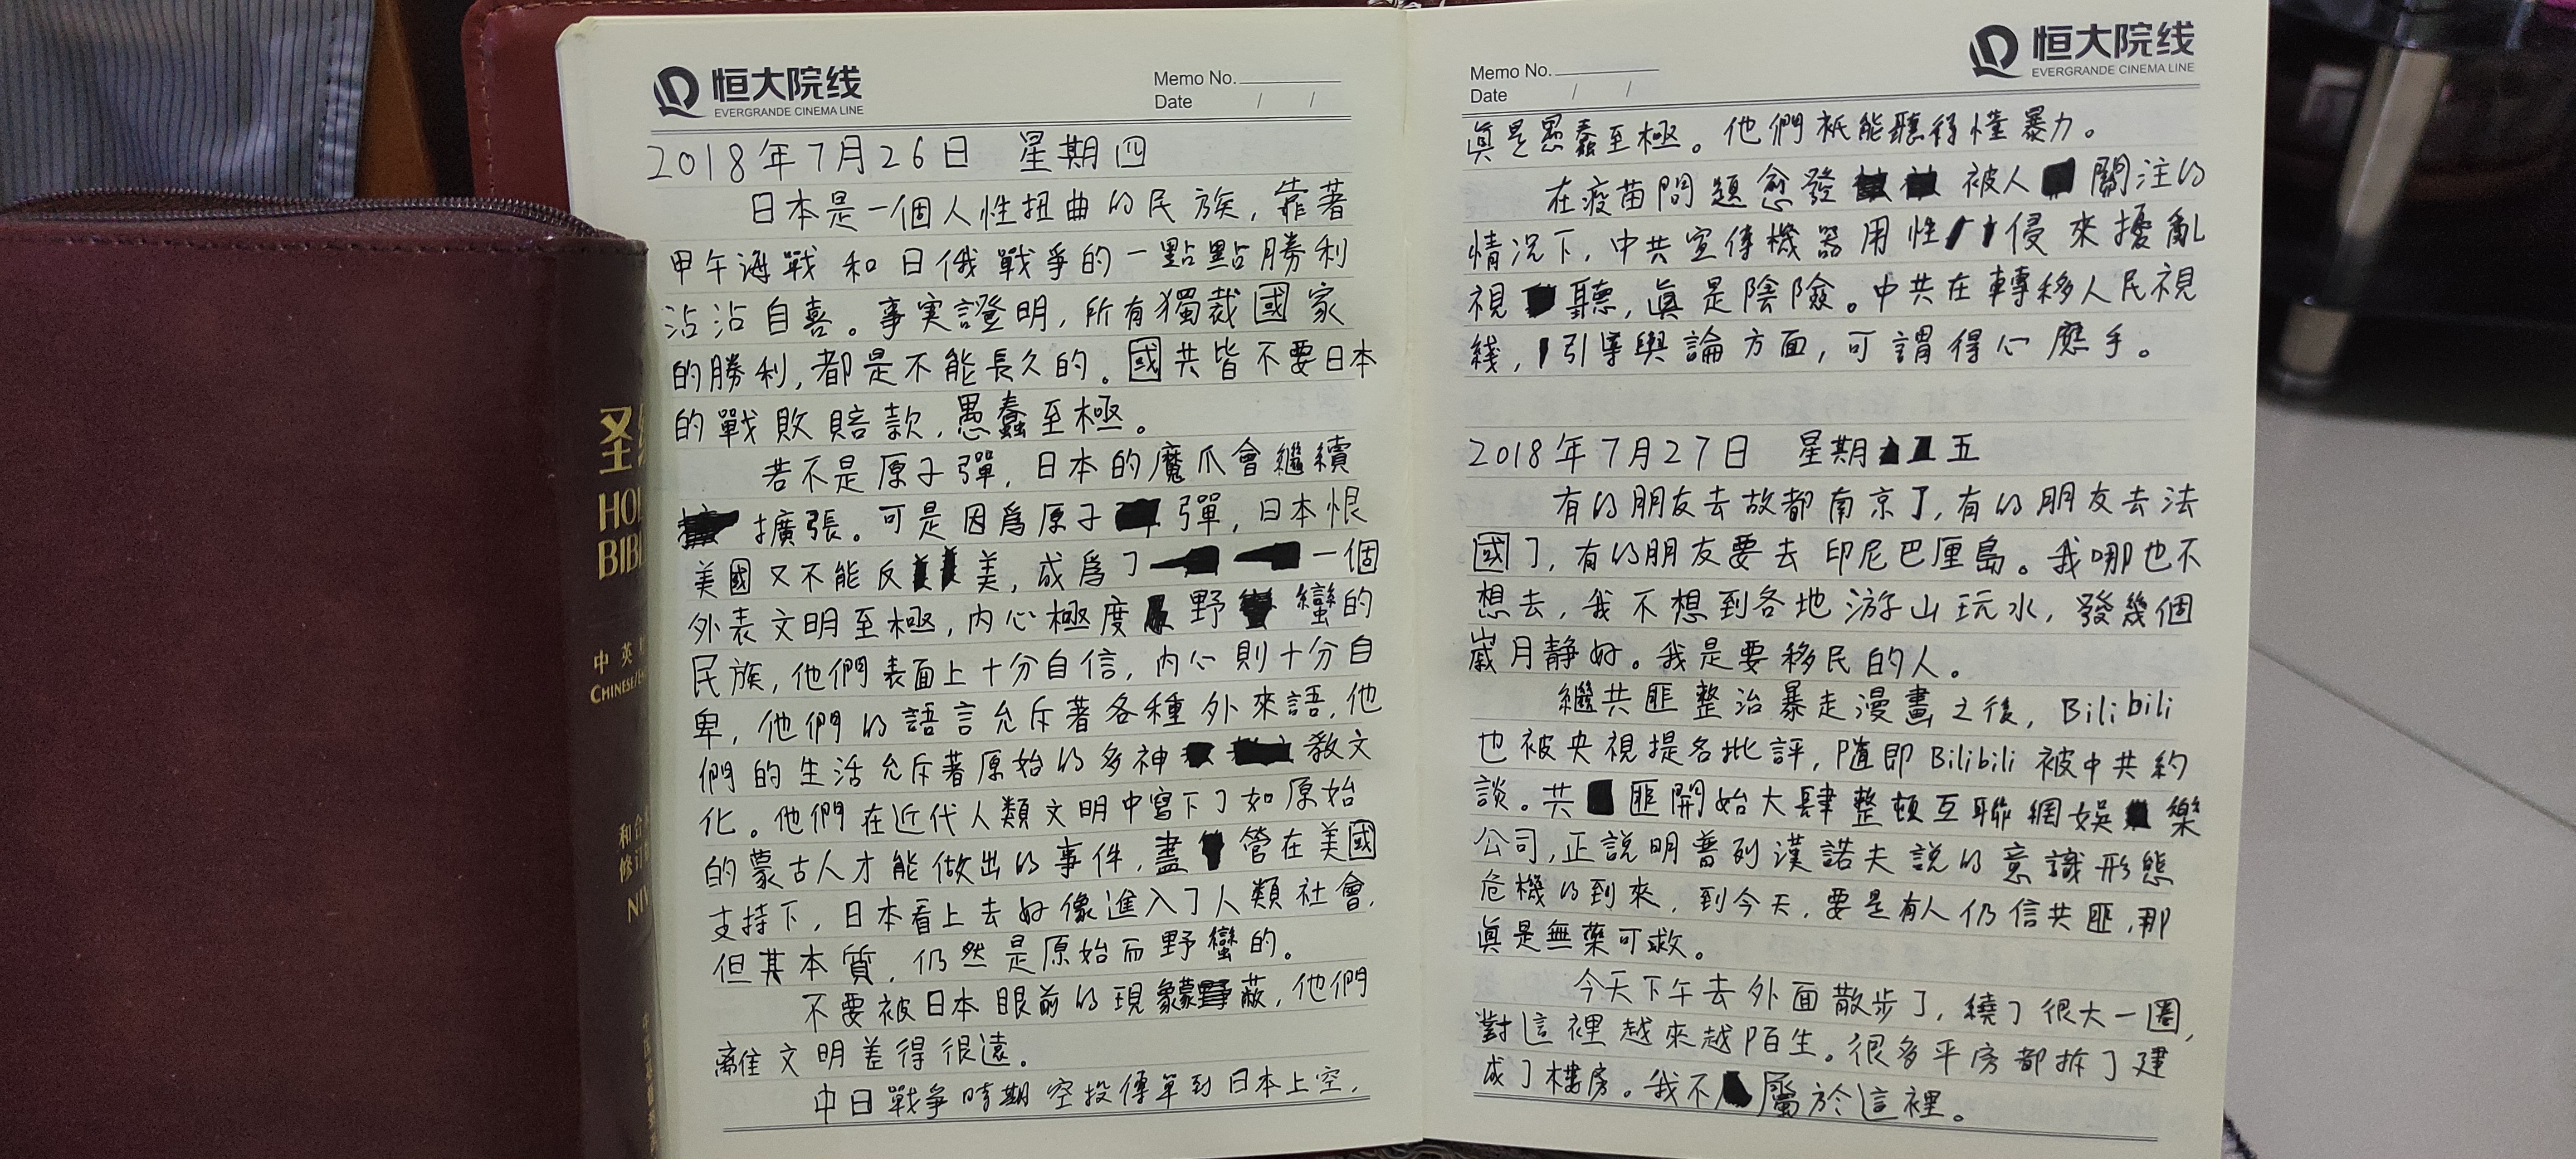 恒大院线
EVERGRANDE CINEMA LINE
Memo No.
Date / /
2018年7月26日 星期四
日本是一個人性扭曲的民族，靠著
甲午海戰和日俄戰爭的一點點勝利
沾沾自喜。事実證明，所有獨裁國家
的勝利，都是不能長久的。國共皆不要日本
的戰敗賠款，愚蠢至極。
若不是原子彈，日本的魔爪會繼續
擴張。可是因爲原子彈，日本恨
美國又不能反美，成爲了一個
外表文明至極，内心極度野蠻的
民族，他們表面上十分自信，内心則十分自
卑，他們的語言允斥著各種外來語，他
們的生活允斥著原始的多神教文
化。他們在近代人類文明中寫下了如原始
的蒙古人才能做出的事件，盡管在美國
支持下，日本看上去好像進入了人類社會，
但其本質，仍然是原始而野蠻的。
不要被日本眼前的現象蒙蔽，他們
離文明差得很遠。
中日戰爭時期空投傳單到日本上空，
恒大院线
EVERGRANDE CINEMA LINE
Memo No.
Date / /
眞是愚蠢至極。他們祇能聽得懂暴力。
在疫苗問題愈發被人關注的
情况下，中共宣傳機器用性侵來擾亂
視聽，眞是陰險。中共在轉移人民視
綫，引導輿論方面，可謂得心應手。
2018年7月27日 星期五
有的朋友去故都南京了，有的朋友去法
國了，有的朋友要去印尼巴厘島。我哪也不
想去，我不想到各地游山玩水，發幾個
嵗月靜好。我是要移民的人。
繼共匪整治暴走漫畫之後，Bilibili
也被央視提名批評，隨即Bilibili被中共約
談。共匪開始大肆整頓互聯網娛樂
公司，正説明普列漢諾夫説的意識形態
危機的到來，到今天，要是有人仍信共匪，那
眞是無藥可救。
今天下午去外面散步了，繞了很大一圈，
對這裡越來越陌生。很多平房都拆了建
成了樓房。我不屬於這裡。
圣
HOL
BIBL
中英
CHINESE/E
和合
修订
NIV